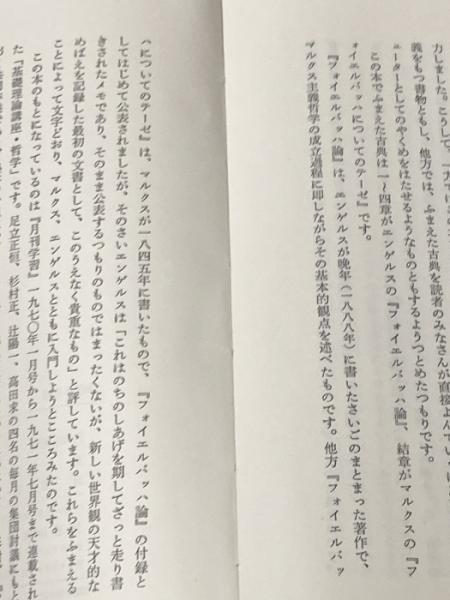 力しました。こうして、一方では
義をもつ書物ともし、他方では、ふまえた古典を読者のみなさんが直接よんでいく
ューターとしてのやくめをはたせるようなものともするようつとめたつもりです。
この本でふまえた古典は一～四章がエンゲルスの『フォイエルバッハ論』、結章がマルクスの『フ
ォイエルバッハについてのテーゼ』です。
『フォイエルバッハ論』は、エンゲルスが晩年(一八八八年)に書いたさいごのまとまった著作で、
マルクス主義哲学の成立過程に即しながらその基本的観点を述べたものです。他方『フォイエルバッ
ハについてのテーゼ』は、マルクスが一八四五年に書いたもので、『フォイエルバッハ論』の付録と
してはじめて公表されましたが、そのさいエンゲルスは「これはのちのしあげを期してざっと走り書
きされたメモであり、そのまま公表するつもりのものではまったくないが、新しい世界観の天才的な
めばえを記録した最初の文書として、このうえなく貴重なもの」と評しています。これらをふまえる
ことによって文字どおり、マルクス、エンゲルスとともに入門しようとこころみたのです。
この本のもとになっているのは『月刊学習』一九七〇年一月号から一九七一年七月号まで連載され
た「基礎理論講座・哲学」です。足立正恒、杉村正、辻陽一、高田求の四名の毎月の集団討議にもと